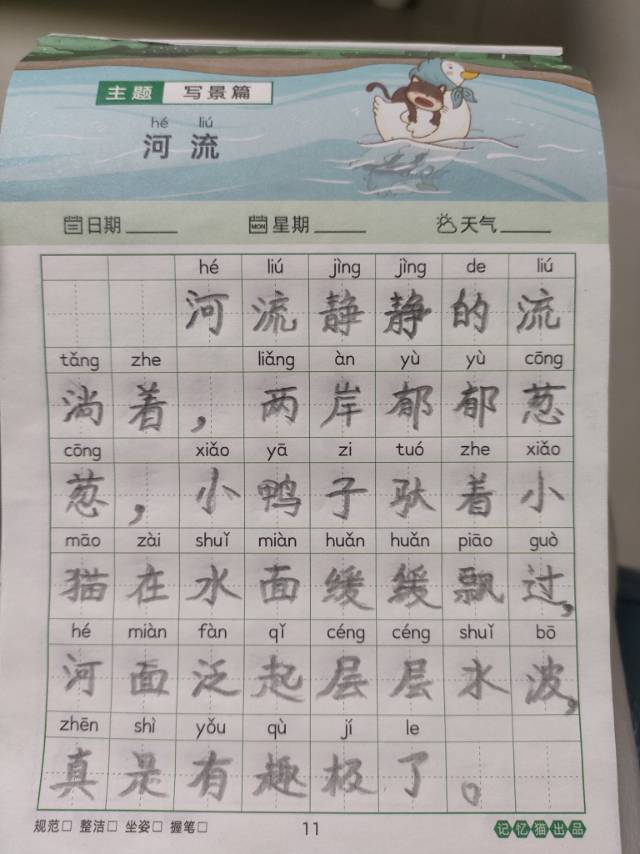 主题 写景篇
hé liú
河流
日期 星期 天气
hé liú jìng jìng de liú
河流静静的流
tǎng zhe liǎng àn yù yù cōng
淌着，两岸郁郁葱
cōng xiǎo yā zi tuó zhe xiǎo
葱，小鸭子驮着小
māo zài shuǐ miàn huǎn huǎn piāo guò
猫在水面缓缓飘过，
hé miàn fàn qǐ céng céng shuǐ bō
河面泛起层层水波，
zhēn shì yǒu qù jí le
真是有趣极了。
规范□ 整洁□ 坐姿□ 握笔□ 11 记忆猫出品